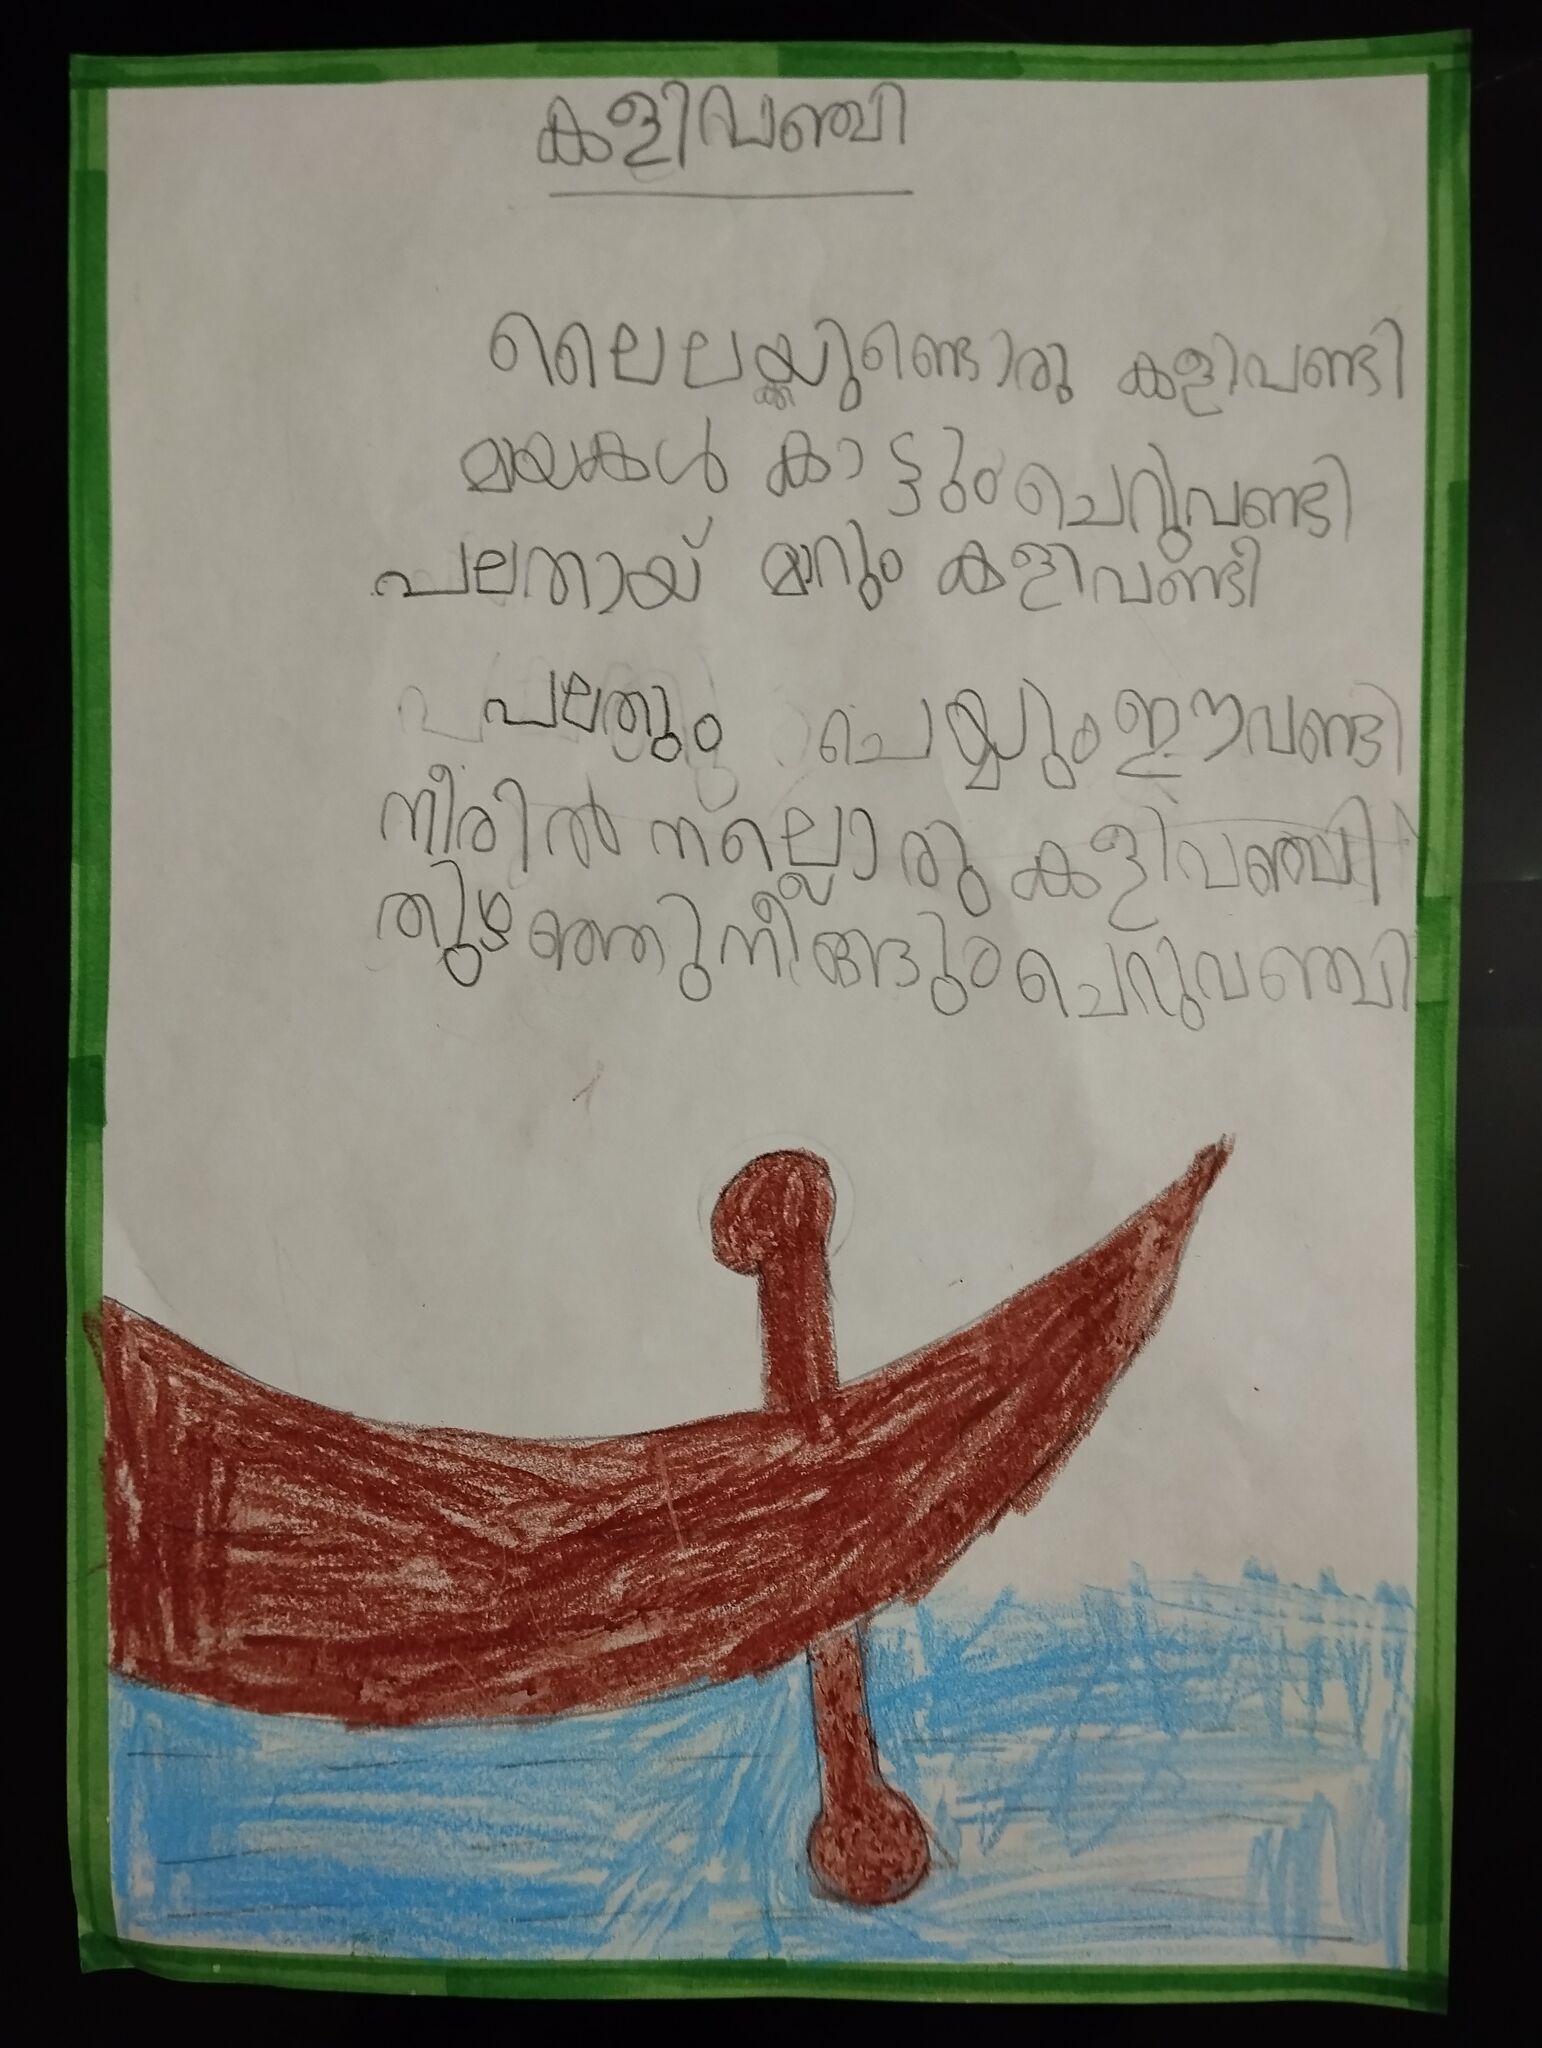 കളിവഞ്ചി
ലൈലയ്ക്കുണ്ടൊരു കളിവണ്ടി
മായകൾ കാട്ടും ചെറുവണ്ടി
പലതായ് മാറും കളിവണ്ടി
പലതും ചെയ്യും ഈ വണ്ടി
നീരിൽ നല്ലൊരു കളിവഞ്ചി
തുഴഞ്ഞു നീങ്ങും ചെറുവഞ്ചി